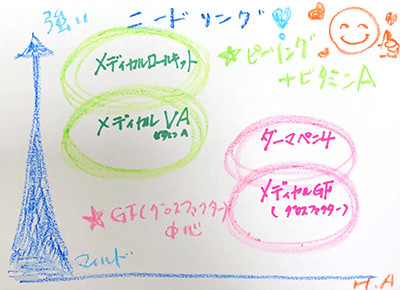 強い
ニードリング
★ピーリング
+ビタミンA
メディカルロールキット
メディカルVA
ビタミンA
ダーマペン4
メディカルGF
(グロスファクター)
★GF(グロスファクター)
中心
マイルド
H.A